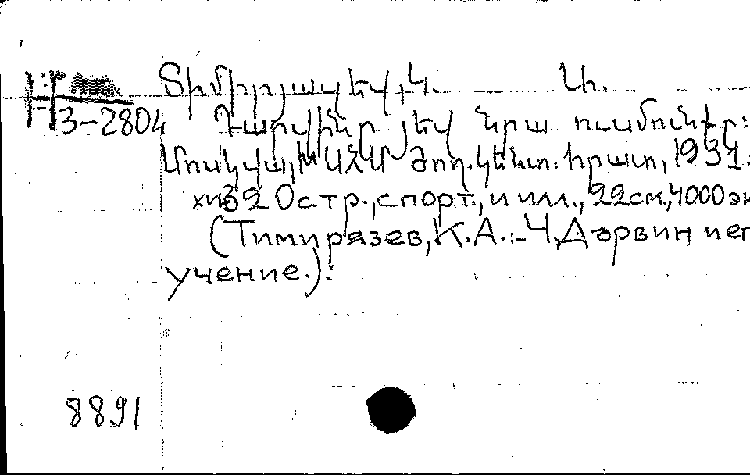 Տիմիրյազեվ, Կ. Ա.
3-2804 Դարվինը յեվ նրա ուսմունքը:
Մոսկվա, ԽՍՀՄ ժող. կենտ. հրատ, 1931.
320 стр., с порт., и илл., 22 см, 4000 эк
(Тимирязев, К. А. - Ч. Дарвин и ег
учение.):
8891